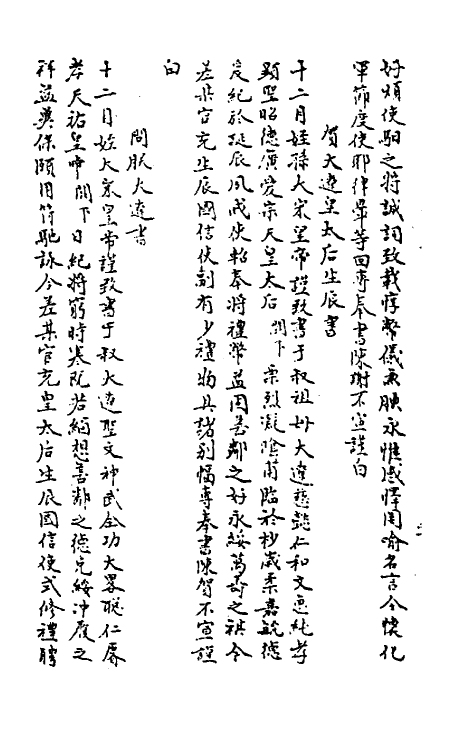 好煩使馹之將誠詞致載惇幣儀兼腆永惟感懌罔喻名言今懷化
軍節度使耶律羣等回專奉書陳謝不宣謹白
賀大遼皇太后生辰書
十二月姪孫大宋皇帝謹致書于叔祖母大遼慈懿仁和文惠純孝
顯聖昭德廣愛宗天皇太后闕下栗烈凝陰甫臨於杪歲柔嘉毓德
爰紀於誕辰夙戒使軺奉將禮幣益固善鄰之好永綏萬壽之祺今
差某官充生辰國信使副有少禮物具諸別幅專奉書陳賀不宣謹
白
問候大遼書
十二月姪大宋皇帝謹致書于叔大遼聖文神武全功大畧聰仁睿
孝天祐皇帝闕下日紀將窮時寒既若緬想善鄰之德克綏沖履之
祥益冀保頤用符馳詠今差某官充皇太后生辰國信使式修禮聘